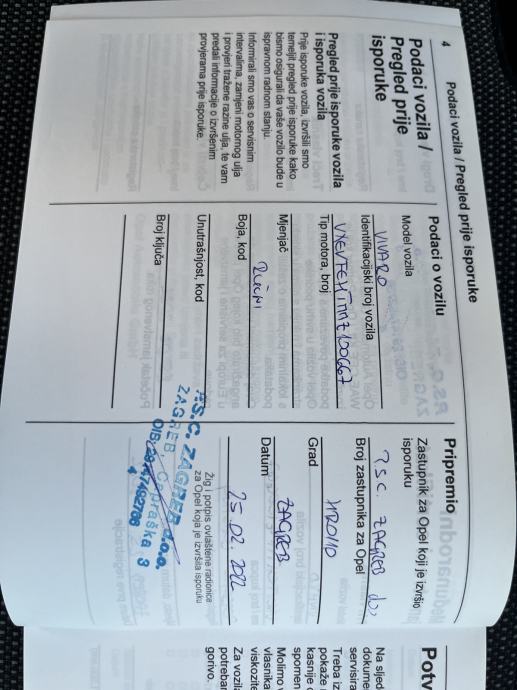 4
Podaci vozila / Pregled prije isporuke
Podaci vozila /
Pregled prije
isporuke
Pregled prije isporuke vozila
i isporuka vozila
Prije isporuke vozila, izvršili smo
temeljit pregled prije isporuke kako
bismo osigurali da vaše vozilo bude u
ispravnom radnom stanju.
Informirali smo vas o servisnim
intervalima, zamjeni motornog ulja
i provjeri tražene razine ulja, te vam
predali informacije o izvršenim
provjerama prije isporuke.
Podaci o vozilu
Model vozila
VIVARO
Identifikacijski broj vozila
Tip motora, broj
Mjenjač
RUČNI
Boja, kod
Unutrašnjost, kod
Broj ključa
Pripremio
Zastupnik za Opel koji je izvršio
isporuku
P.S.C. ZAGREB doo
Broj zastupnika za Opel
HR0110
Grad
ZAGREB
Datum
25.02.2022
Žig i potpis ovlaštene radionice
za Opel koja je izvršila isporuku
P.S.C. ZAGREB d.o.o.
ZAGREB,
OIB:
4
Potv
Na sljed
dokume
servisira
Treba iz
pokaže
kasnije
spomen
Molimo
vlasnika
viskozite
Za vozila
potreba
gorivo.